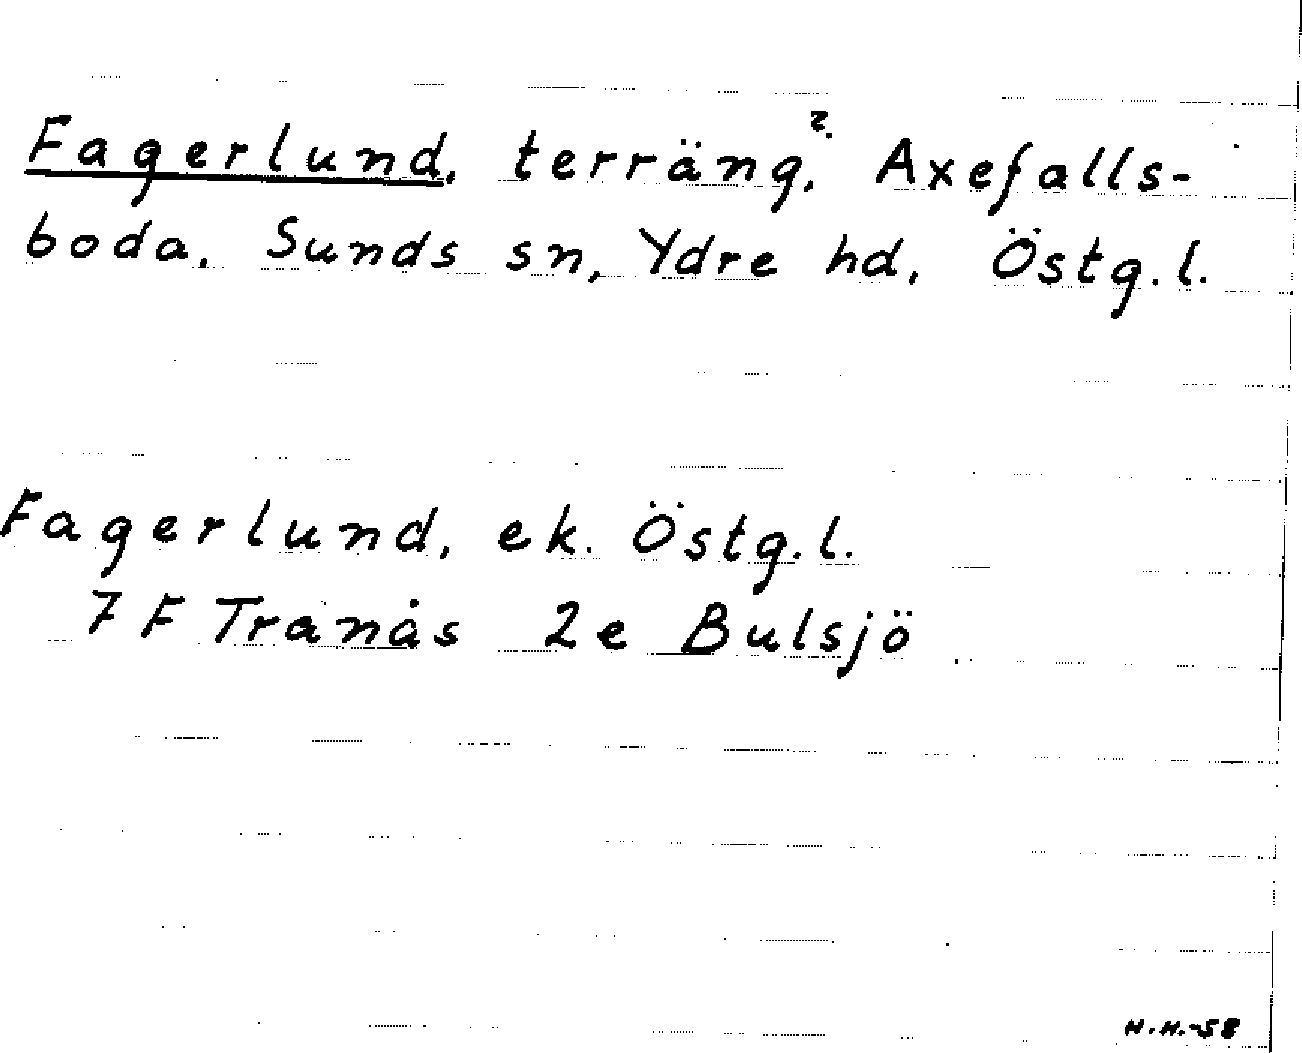 Fagerlund, terräng?, Axefalls-
boda, Sunds sn, Ydre hd, Östg.l.
Fagerlund, ek. Östg.l.
7 F Tranås 2e Bulsjö
H.H.-58